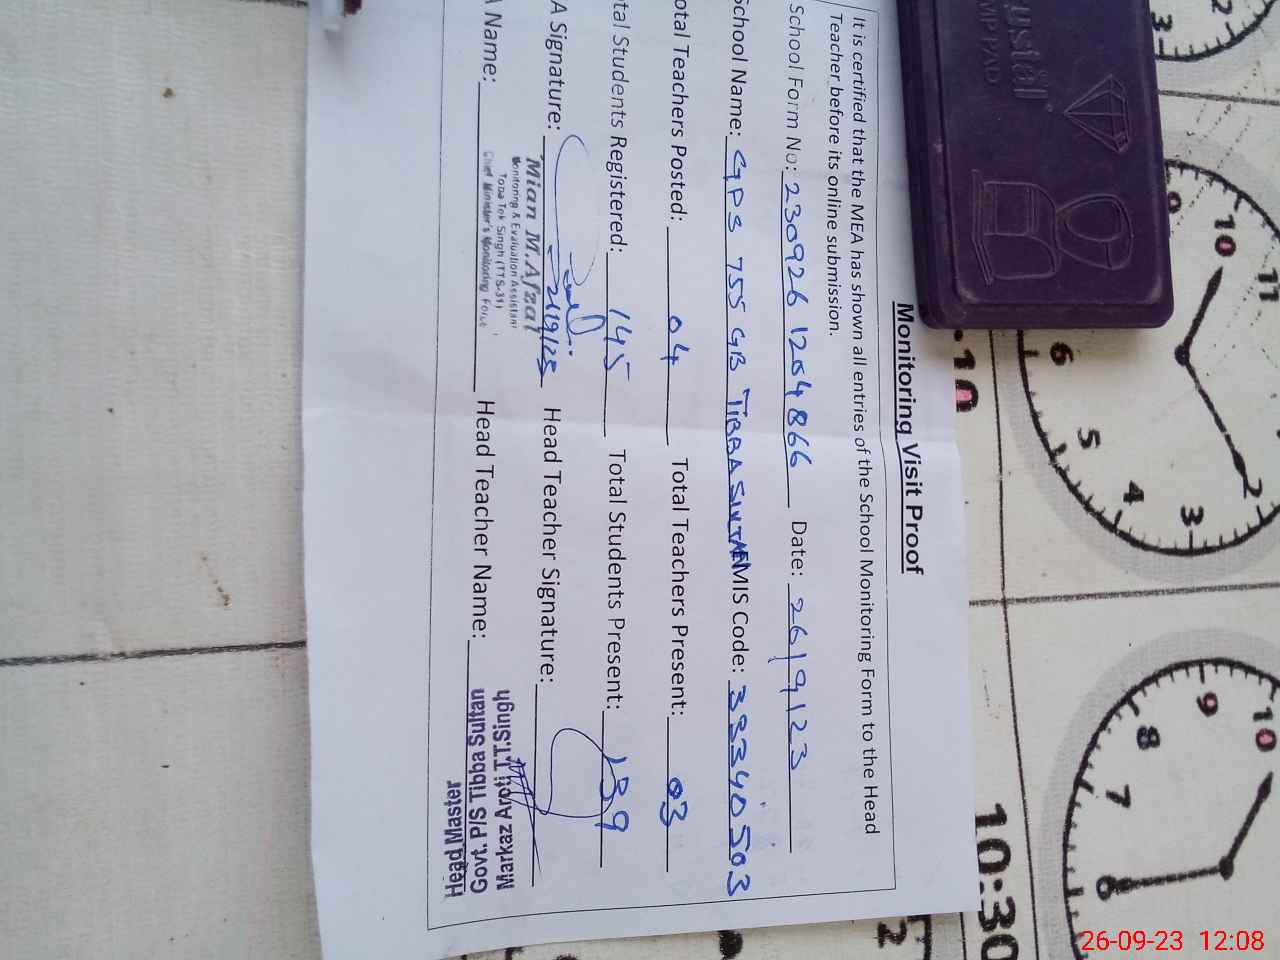 Monitoring Visit Proof
It is certified that the MEA has shown all entries of the School Monitoring Form to the Head
Teacher before its online submission.
School Form No: 230926 1204866 Date: 26/9/23
School Name: GPS 755 GB TIBBA SULTAN EMIS Code: 33340503
otal Teachers Posted: 04 Total Teachers Present: 03
tal Students Registered: 145 Total Students Present: 139
A Signature: Head Teacher Signature:
Mian M.Afzal
Monitoring & Evaluation Assistant
Toba Tek Singh (TTS-31)
Chief Minister's Monitoring Force
A Name: Head Teacher Name:
Head Master
Govt. P/S Tibba Sultan
Markaz Aroti T.T.Singh
MP PAD
10:30
11
10
2
3
4
5
6
10
9
8
7
6
26-09-23 12:08